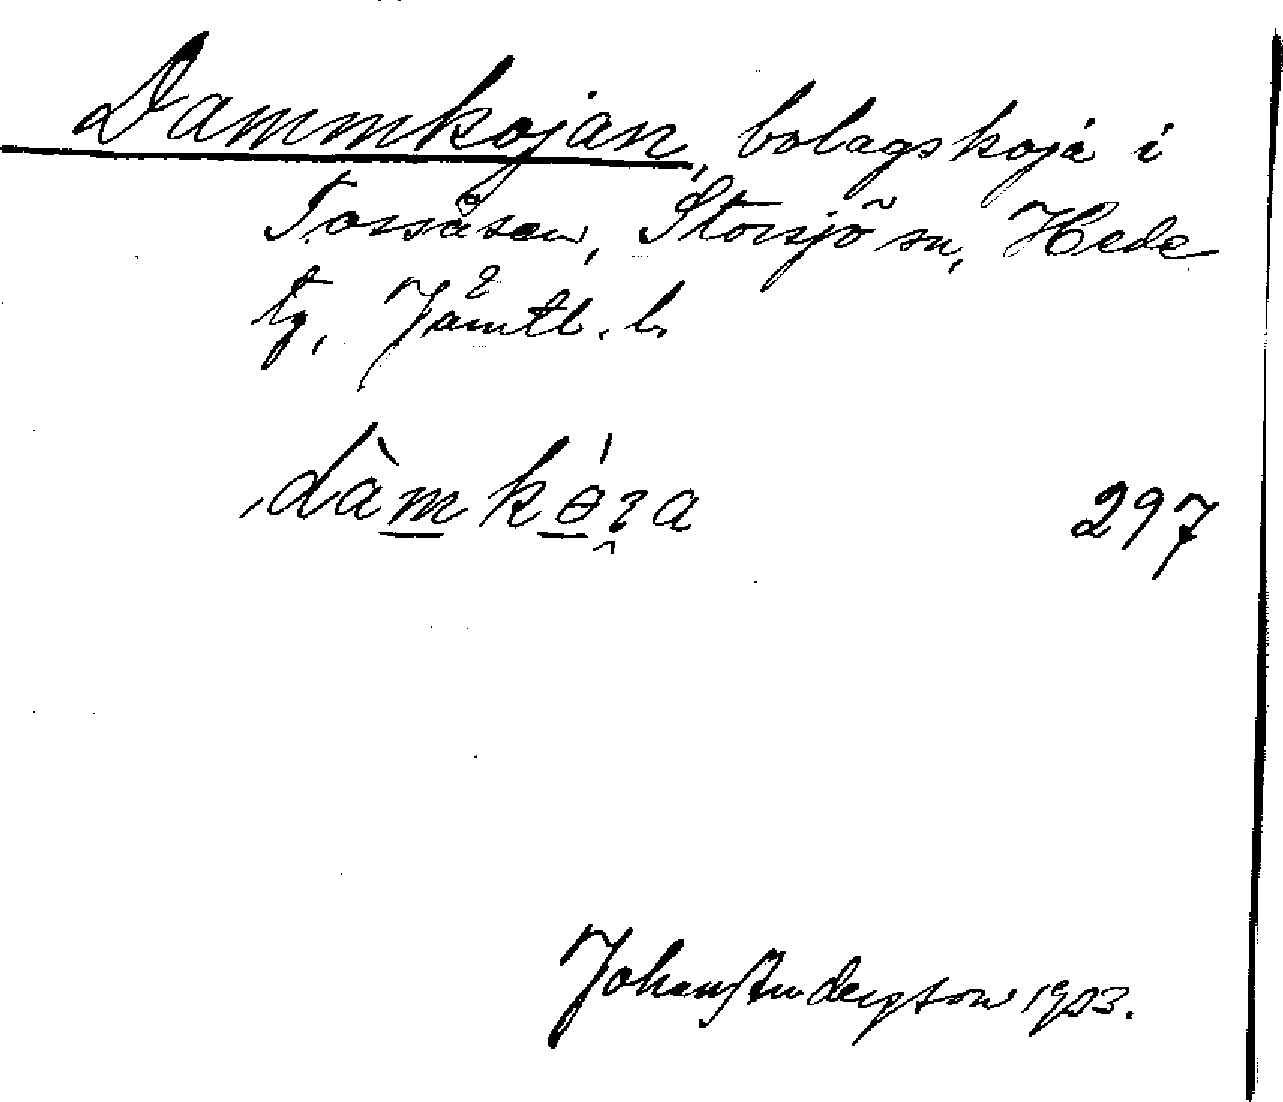 Dammkojan, bolagskoja i
Torsåsen, Storsjö sn, Hede
tg, Jämtl. l.
297
Johan Anderzson 1923.